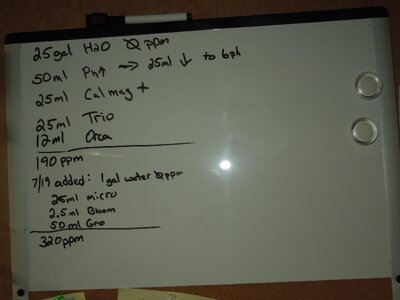 25gal H2O Ø ppm
50ml Ph↑ => 25ml ↓ to 6ph
25ml Calmag +
25ml Trio
12ml Orca
190ppm
7/19 added: 1gal water Øppm
25ml micro
2.5ml Bloom
50ml Gro
320ppm